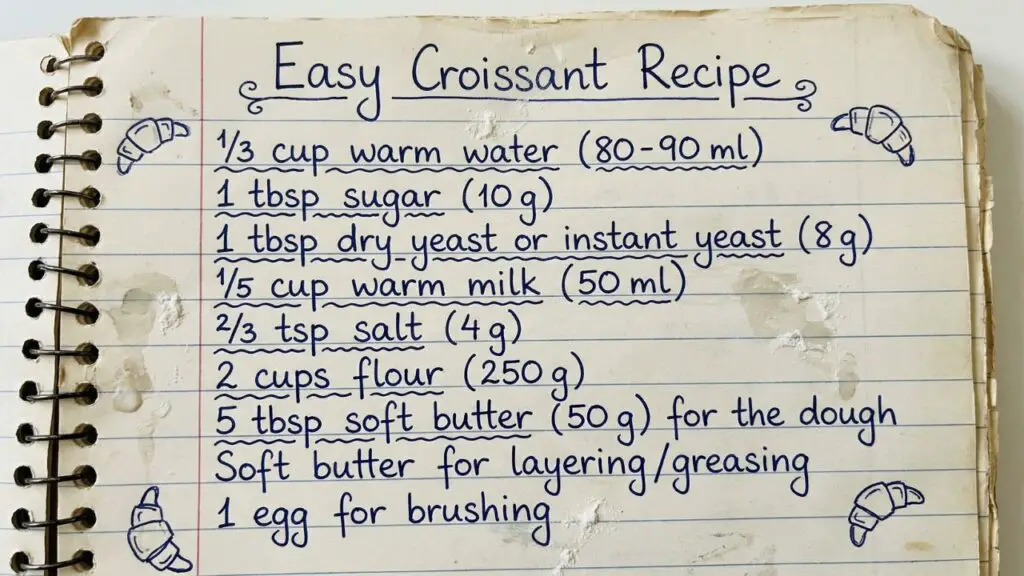 Easy Croissant Recipe
1/3 cup warm water (80-90 ml)
1 tbsp sugar (10 g)
1 tbsp dry yeast or instant yeast (8 g)
1/5 cup warm milk (50 ml)
2/3 tsp salt (4 g)
2 cups flour (250 g)
5 tbsp soft butter (50 g) for the dough
Soft butter for layering/greasing
1 egg for brushing